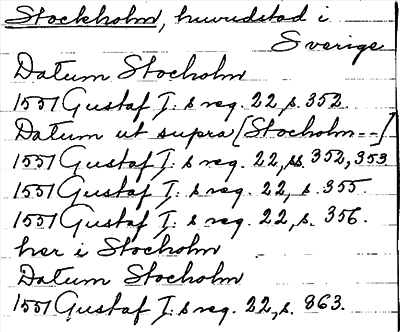 Stockholm, huvudstad i
Sverige
Datum Stocholm
1551 Gustaf I: s reg. 22, s. 352.
Datum ut supra [Stocholm--]
1551 Gustaf I: s reg. 22, ss. 352, 353
1551 Gustaf I: s reg. 22, s. 355.
1551 Gustaf I: s reg. 22, s. 356.
her i Stocholm
Datum Stocholm
1551 Gustaf I: s reg. 22, s. 863.